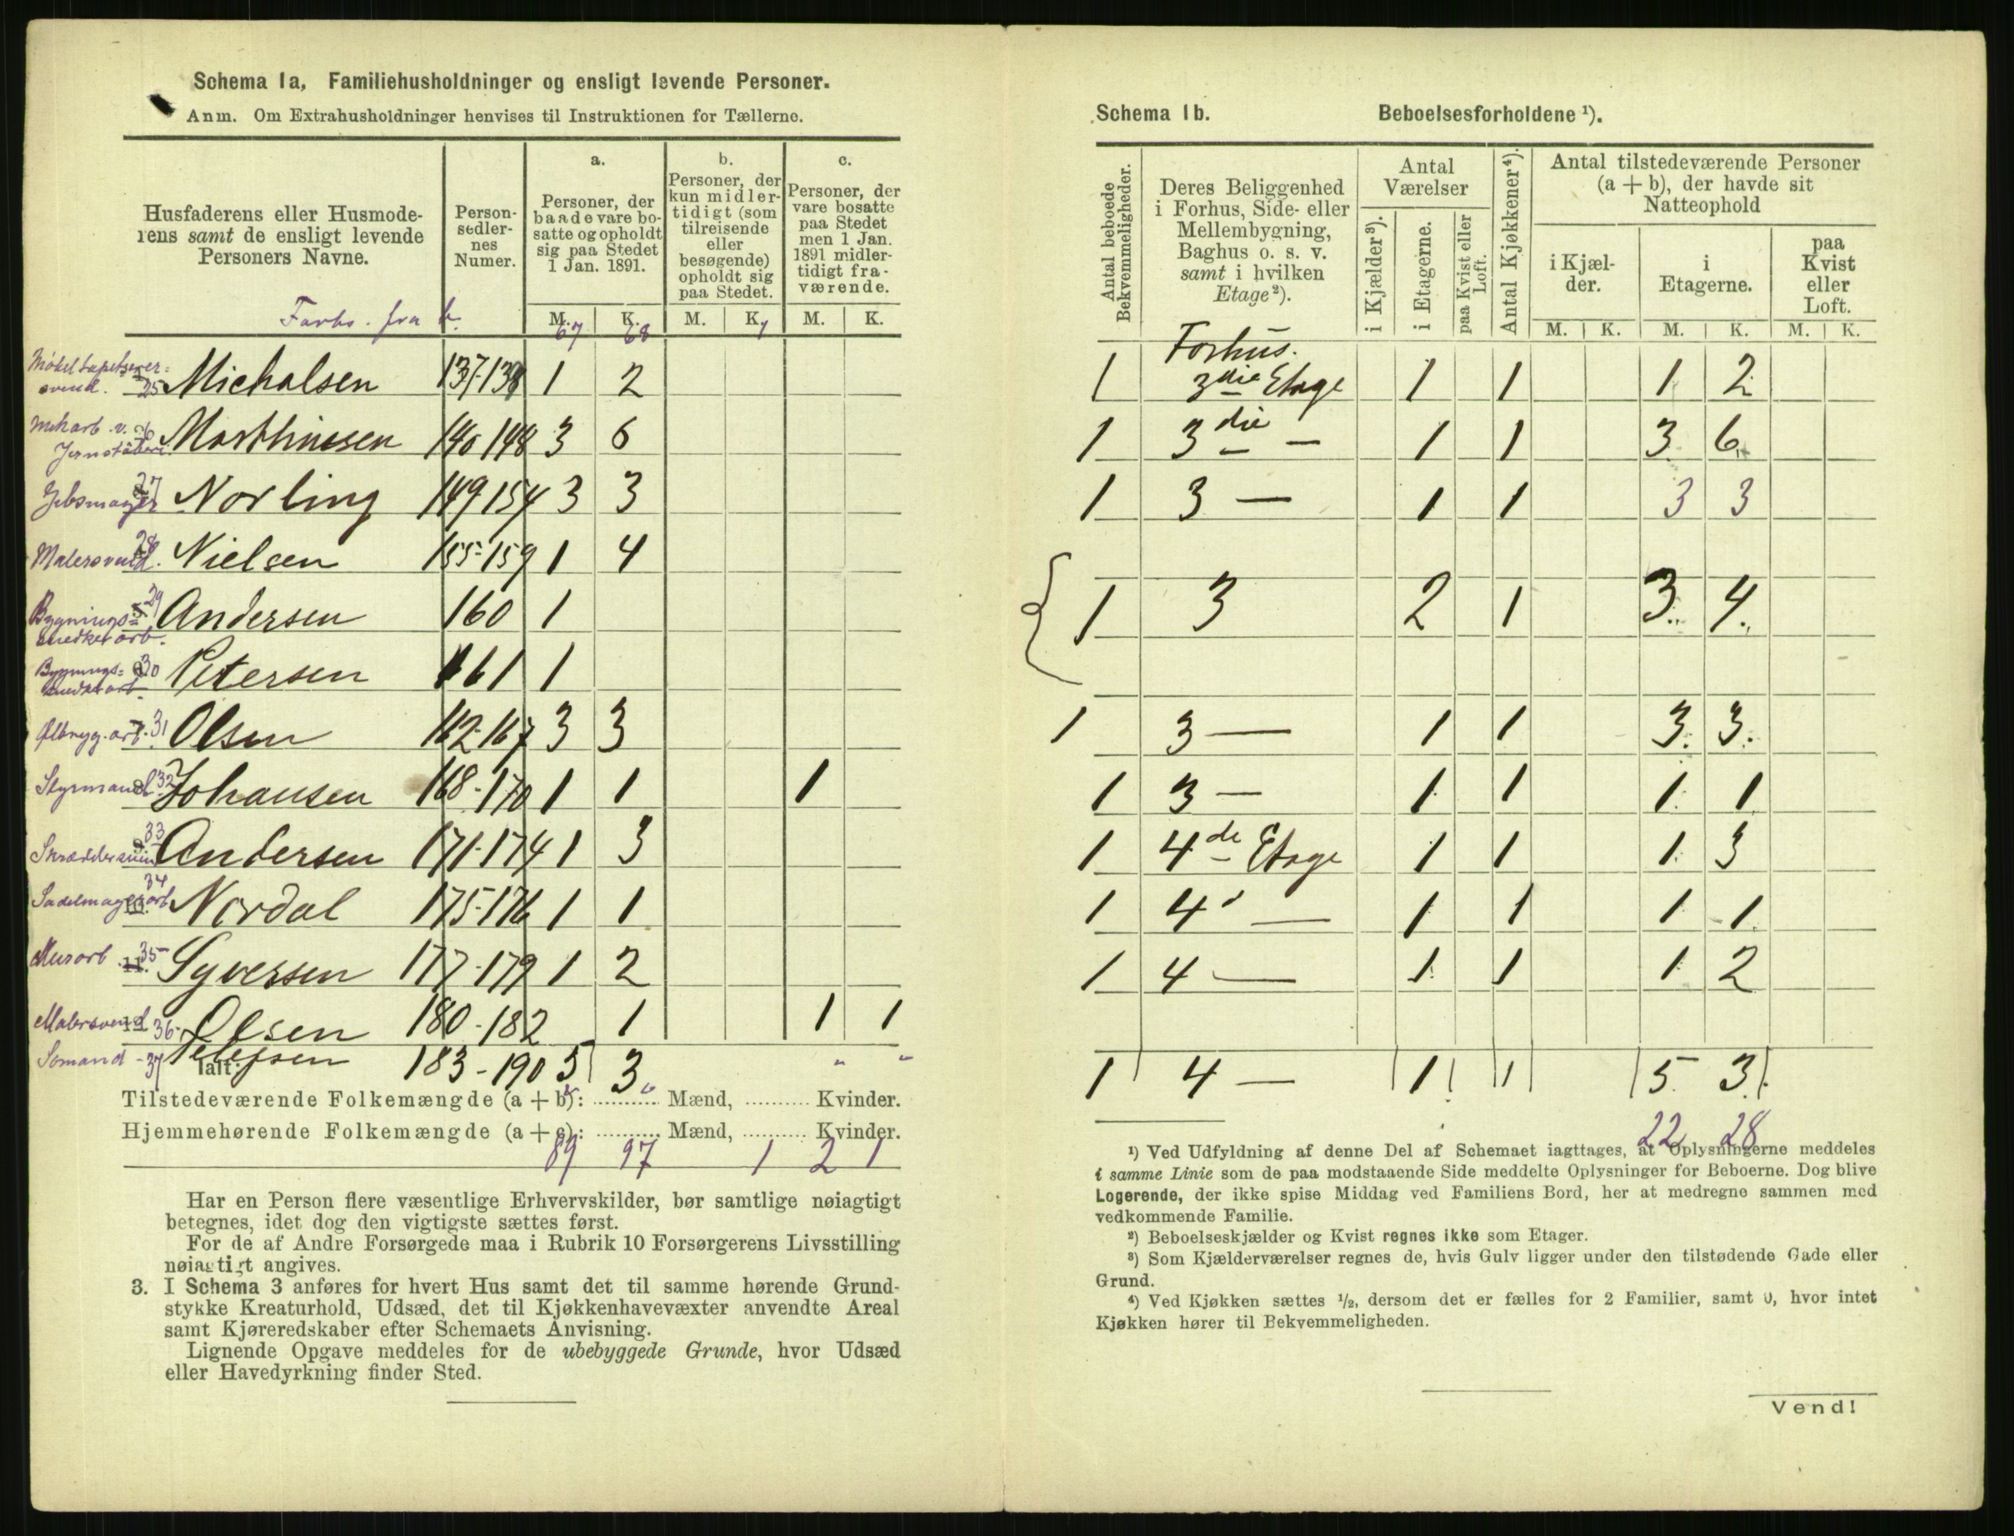 Schema 1a, Familiehusholdninger og ensligt levende Personer.
Anm. Om Extrahusholdninger henvises til Instruktionen for Tællerne.
Husfaderens eller Husmoderens samt de ensligt levende Personers Navne.
Personsedlernes Numer.
a.
Personer, der baade vare bosatte og opholdt sig paa Stedet 1 Jan. 1891.
b.
Personer, der kun midlertidigt (som tilreisende eller besøgende) opholdt sig paa Stedet.
c.
Personer, der vare bosatte paa Stedet men 1 Jan. 1891 midlertidigt fraværende.
M. K. M. K. M. K.
fra b. 67 68 1
25 Michalsen 137-138 1 2
26 Marthinsen 140 148 3 6
27 Norling 149 154 3 3
Malersvend. 28 Nielsen 155-159 1 4
Bygnings= snedker arb. 29 Andersen 160 1
Bygnings= snedk arb. 30 Petersen 161 1
Ølbryg. arb. 31 Olsen 162-167 3 3
Styrmand 32 Johansen 168-170 1 1 1
33 Andersen 171-174 1 3
Sadelmager arb 34 Nordal 175-176 1 1
Murarb. 11. 35 Syversen 177-179 1 2
Malersvend 36 Olsen 180-182 1 1 1
Sømand 37 183-190 5 3 " "
Ialt:
Tilstedeværende Folkemængde (a + b): ............ Mænd, ............ Kvinder.
Hjemmehørende Folkemængde (a + c): ............ Mænd, ............ Kvinder.
89 97 1 2 1
Har en Person flere væsentlige Erhvervskilder, bør samtlige nøiagtigt
betegnes, idet dog den vigtigste sættes først.
For de af Andre Forsørgede maa i Rubrik 10 Forsørgerens Livsstilling
nøiagtigt angives.
3. I Schema 3 anføres for hvert Hus samt det til samme hørende Grund-
stykke Kreaturhold, Udsæd, det til Kjøkkenhavevæxter anvendte Areal
samt Kjøreredskaber efter Schemaets Anvisning.
Lignende Opgave meddeles for de ubebyggede Grunde, hvor Udsæd
eller Havedyrkning finder Sted.
Schema 1b. Beboelsesforholdene ¹).
Antal beboede Bekvemmeligheder.
Deres Beliggenhed i Forhus, Side- eller Mellembygning, Baghus o. s. v. samt i hvilken Etage ²).
Antal Værelser
i Kjælder ³).
i Etagerne.
paa Kvist eller Loft.
Antal Kjøkkener ⁴).
Antal tilstedeværende Personer (a + b), der havde sit Natteophold
i Kjælder.
i Etagerne.
paa Kvist eller Loft.
M. K. M. K. M. K.
Forhus.
1 3die Etage 1 1 1 2
1 3die — 1 1 3 6
1 3 — 1 1 3 3
1 3 2 1 3. 4.
1 3 — 1 1 3. 3.
1 3 — 1 1 1 1
1 4de Etage 1 1 1 3
1 4 — 1 1 1 1
1 4 — 1 1 1 2
1 4 — 1 1 5 3
22 28
¹) Ved Udfyldning af denne Del af Schemaet iagttages, at Oplysningerne meddeles
i samme Linie som de paa modstaaende Side meddelte Oplysninger for Beboerne. Dog blive
Logerende, der ikke spise Middag ved Familiens Bord, her at medregne sammen med
vedkommende Familie.
²) Beboelseskjælder og Kvist regnes ikke som Etager.
³) Som Kjælderværelser regnes de, hvis Gulv ligger under den tilstødende Gade eller
Grund.
⁴) Ved Kjøkken sættes ½, dersom det er fælles for 2 Familier, samt 0, hvor intet
Kjøkken hører til Bekvemmeligheden.
Vend!